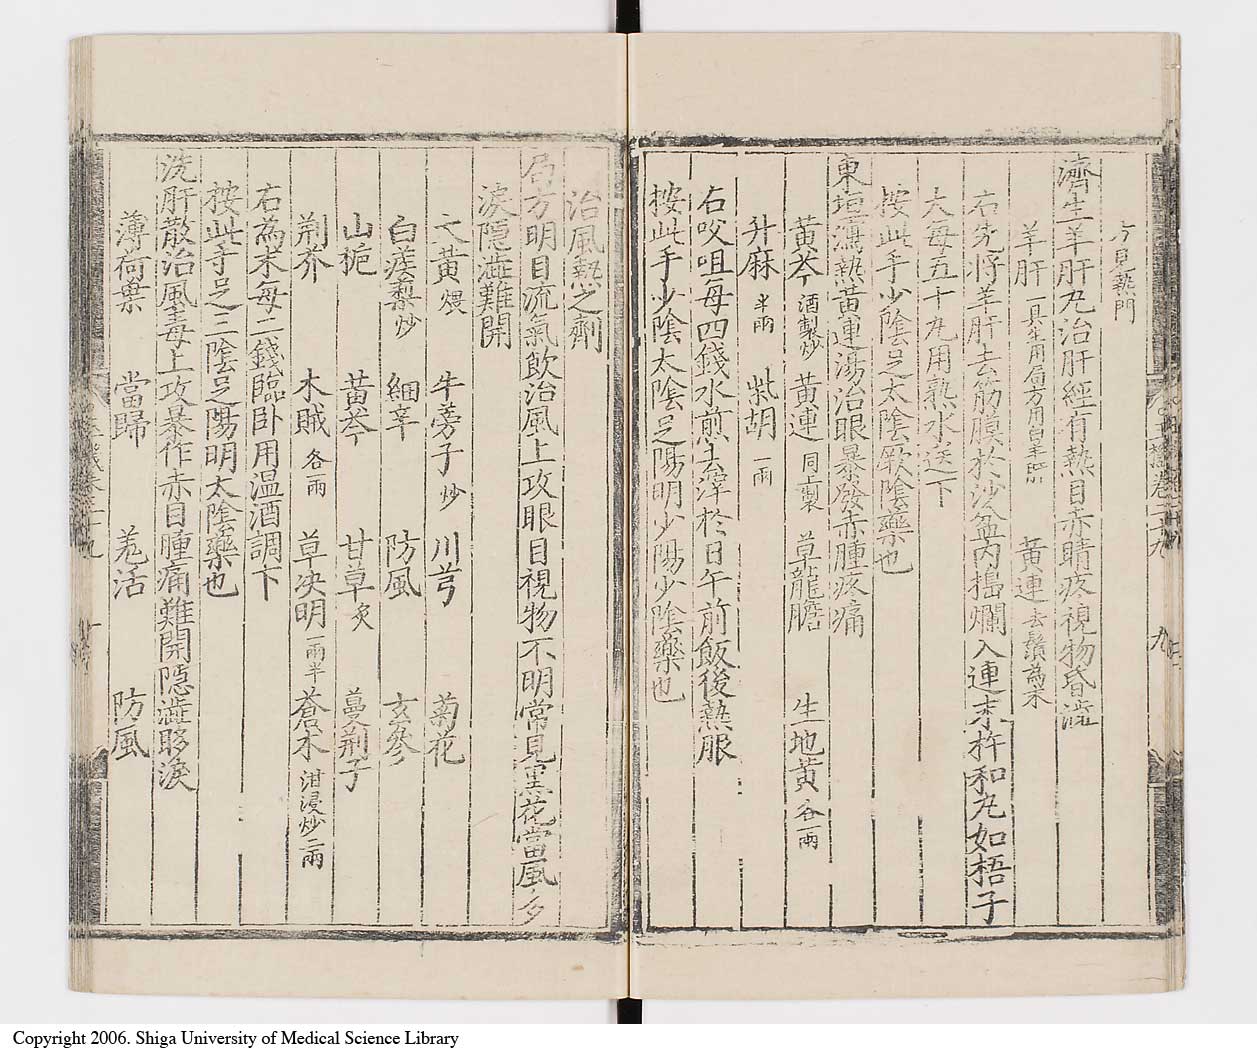 方見熱門
濟生羊肝丸治肝經有熱目赤睛疼視物昏澁
羊肝一具生用局方用白羊肝 黄連去鬚為末
右先將羊肝去筋膜於沙盆內擂爛入連末杵和丸如梧子
大每五十丸用熟水送下
按此手少陰足太陰厥陰藥也
東垣瀉熱黄連湯治眼暴發赤腫疼痛
黄芩酒製炒 黄連同上製 草龍膽 生地黄各一兩
升麻半兩 柴胡一兩
右㕮咀每四錢水煎去滓於日午前飯後熱服
按此手少陰太陰足陽明少陽少陰藥也
治風熱之劑
局方明目流氣飲治風上攻眼目視物不明常見黒花當風多
淚隠澁難開
大黄煨 牛蒡子炒 川芎 菊花
白蒺䔧炒 細辛 防風 玄參
山梔 黄芩 甘草炙 蔓荆子
荆芥 木賊各兩 草决明一兩半 蒼朮泔浸炒二兩
右為末每二錢臨卧用温酒調下
按此手足三陰足陽明太陰藥也
洗肝散治風毒上攻暴作赤目腫痛難開隠澁眵淚
薄荷葉 當歸 羗活 防風
Copyright 2006. Shiga University of Medical Science Library